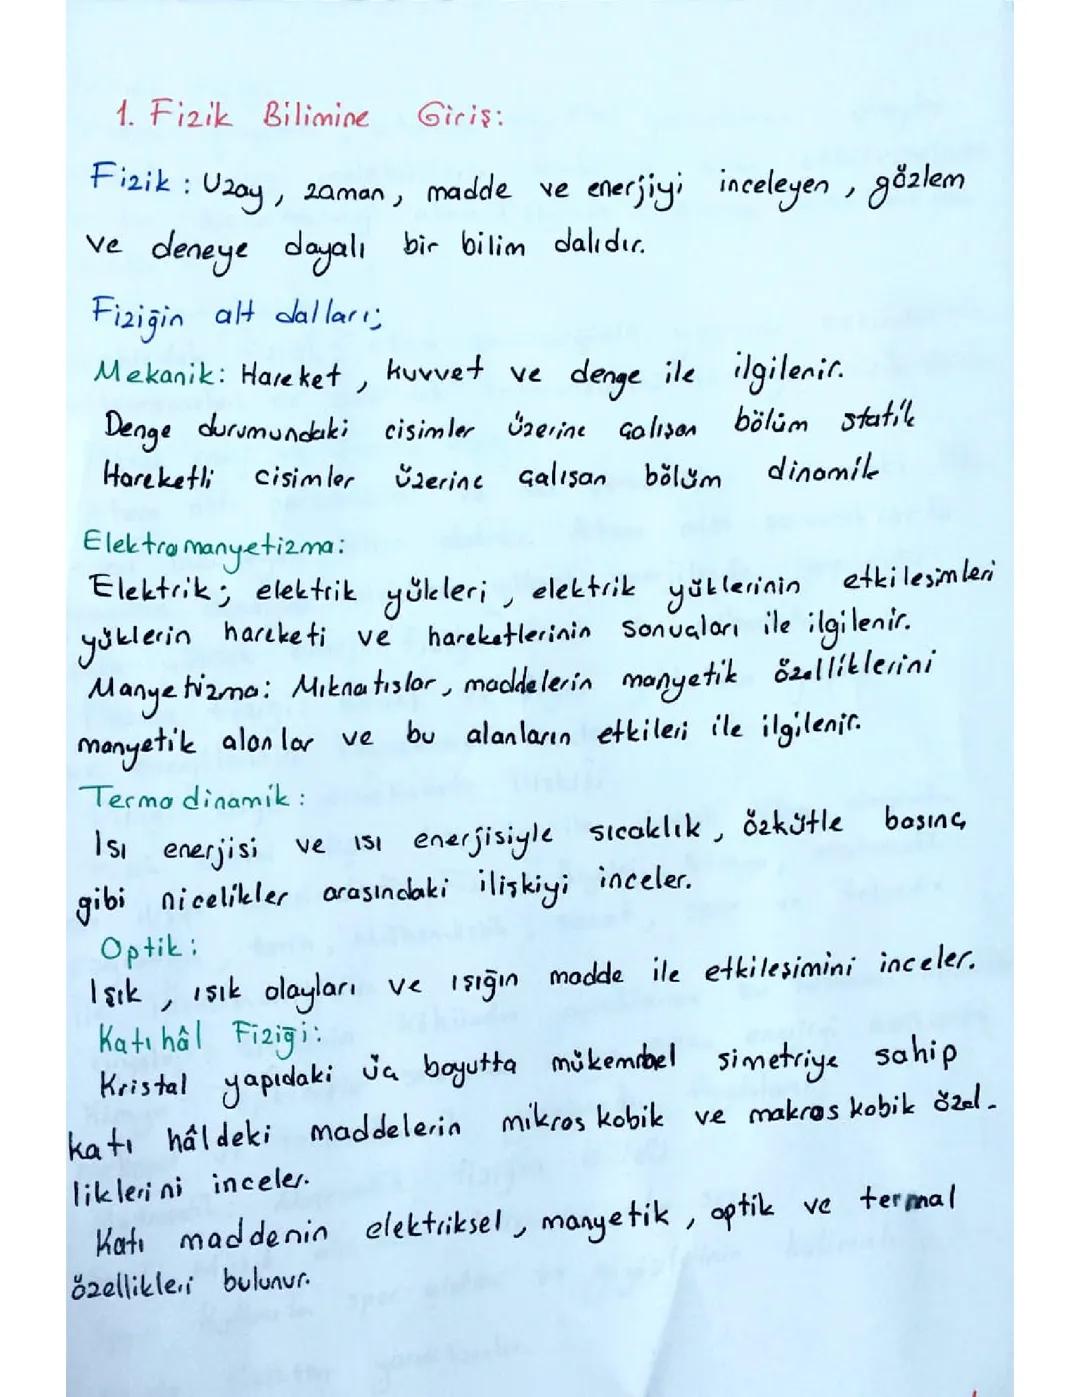 1. Fizik Bilimine Giriş:
Fizik : Uzay, zaman, madde ve enerjiyi inceleyen, gözlem
ve deneye dayalı bir bilim dalıdır.
Fiziğin alt dalları;
Mekanik: Hareket, kuvvet ve denge ile ilgilenir.
Denge durumundaki cisimler üzerine çalışan bölüm statik
Hareketli cisimler üzerine çalışan bölüm dinamik
Elektromanyetizma:
Elektrik; elektrik yükleri, elektrik yüklerinin etkileşimleri
yüklerin hareketi ve hareketlerinin sonuçları ile ilgilenir.
Manyetizma: Mıknatıslar, maddelerin manyetik özelliklerini
manyetik alanlar ve bu alanların etkileri ile ilgilenir.
Termodinamik:
Isı enerjisi ve ısı enerjisiyle sıcaklık, özkütle basınç
gibi nicelikler arasındaki ilişkiyi inceler.
Optik:
Işık, ışık olayları ve ışığın madde ile etkileşimini inceler.
Katıhâl Fiziği:
Kristal yapıdaki üç boyutta mükemmel simetriye sahip
katı hâldeki maddelerin mikroskobik ve makroskobik özel-
liklerini inceler.
Katı maddenin elektriksel, manyetik, optik ve termal
özellikleri bulunur.